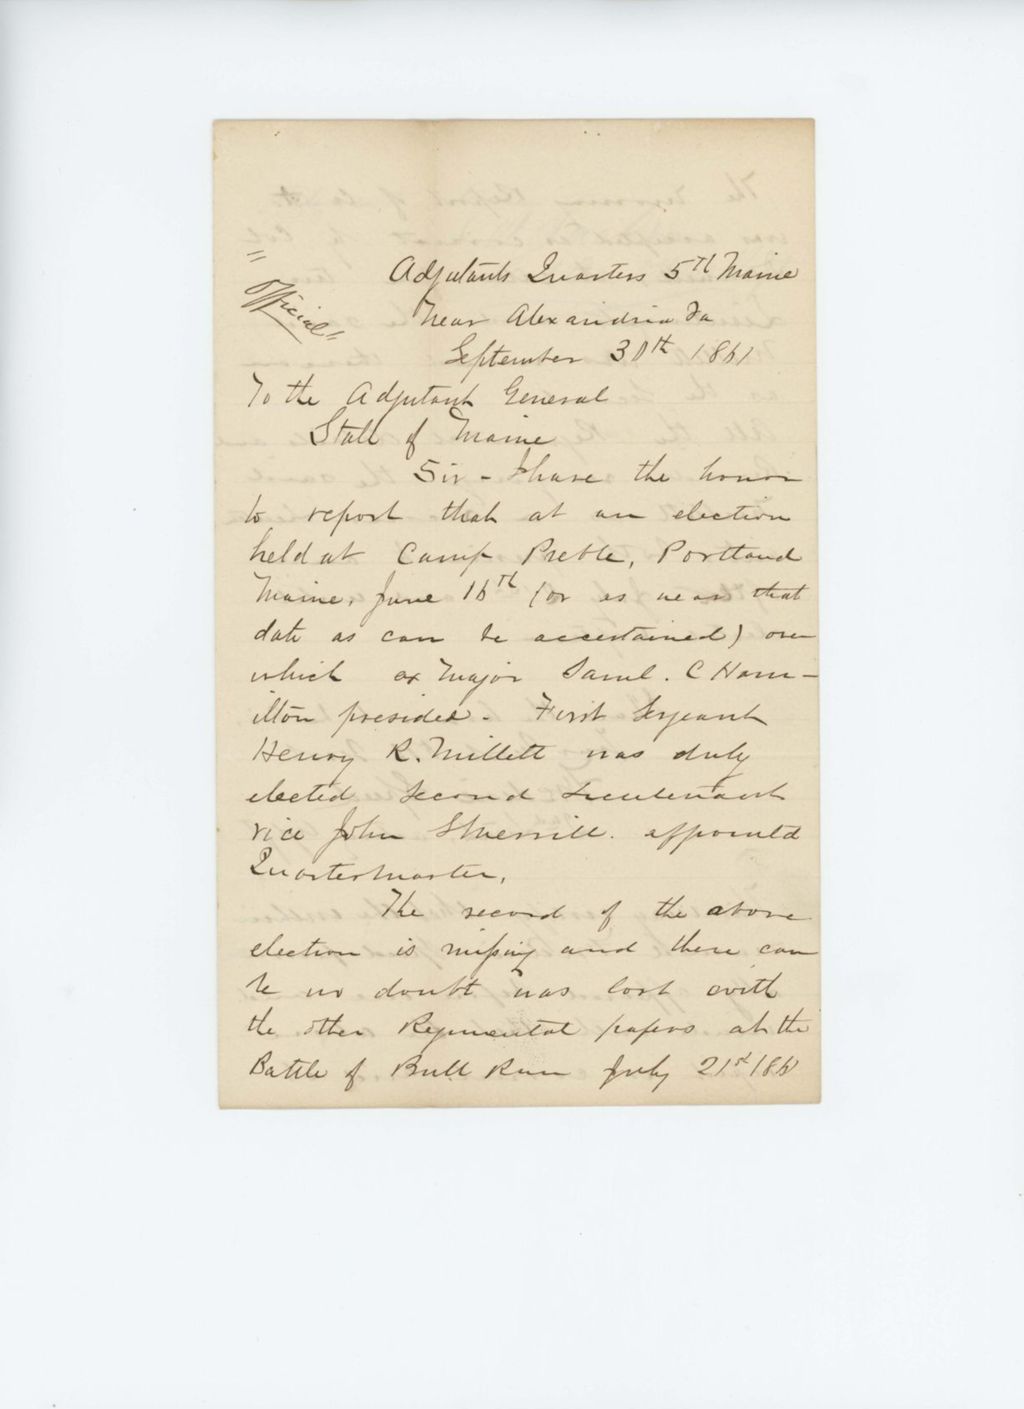 "Official"
Adjutants Quarters 5th Maine
Near Alexandria Va
September 30th 1861
To the Adjutant General
State of Maine
Sir - I have the honor
to report that at an election
held at Camp Preble, Portland
Maine, June 16th (or as near that
date as can be ascertained) over
which ex Major Saml. C Ham-
ilton presided - First Sergeant
Henry R. Millett was duly
elected Second Lieutenant
vice John Sherrill. appointed
Quartermaster.
The record of the above
election is missing and there can
be no doubt was lost with
the other Regimental papers at the
Battle of Bull Run July 21st 1861